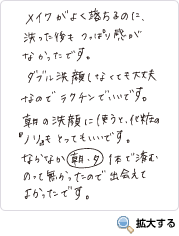 メイクがよく落ちるのに、
洗った後も つっぱり感が
なかったです。
ダブル洗顔しなくても大丈夫
なのでラクチンでいいです。
朝の洗顔に使うと、化粧の
『ノリ』も とってもいいです。
なかなか 朝・夕 1本で済む
のって無かったので 出会えて
よかったです。
拡大する